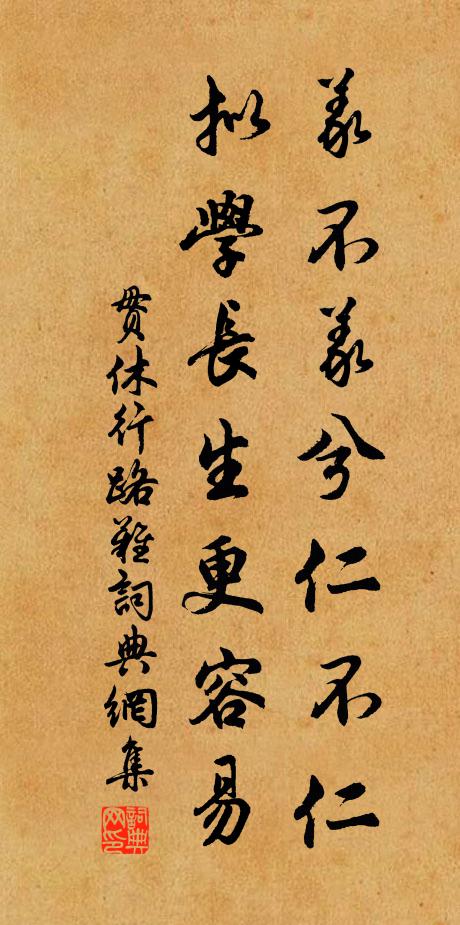 義不義兮仁不仁
拟學長生更容易
貫休行路難詞典網集
詞典网印